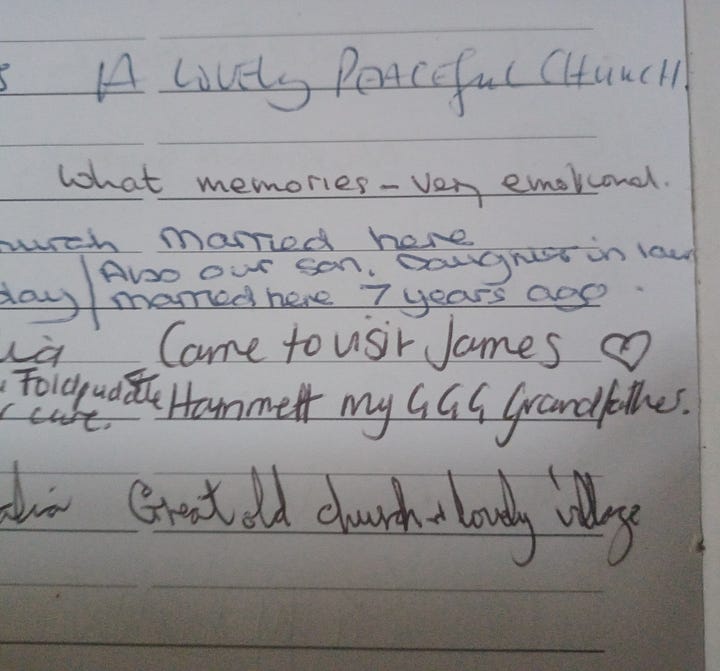 A LOVELY PEACEFUL CHURCH
What memories - very emotional.
Married here
Also our son, Daughter in law
day / married here 7 years ago.
Came to visit James ♡
Hammett my GGG Grandfather.
Great old church + lovely village